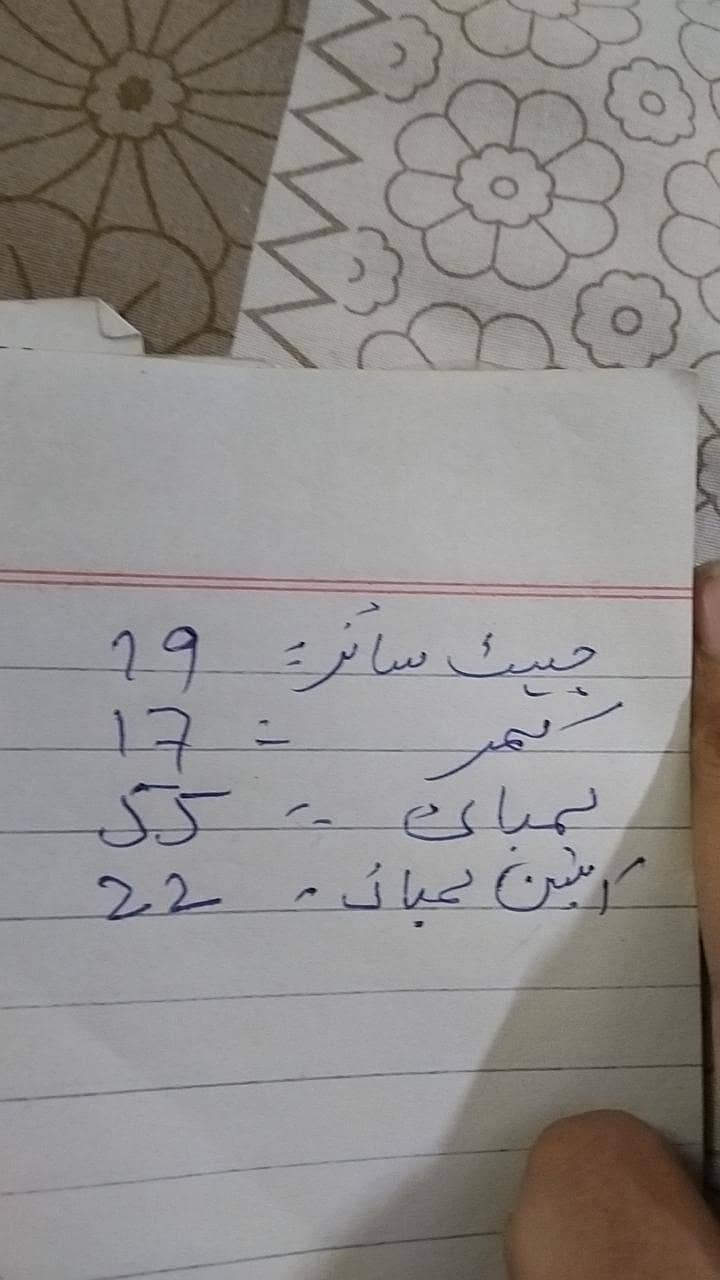 چیسٹ سائز = 19
کمر = 17
لمبائی = 55
آستین لمبائی = 22